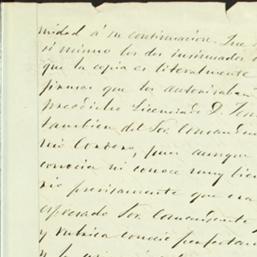 midad á su continuacion. Que
si mismo los dos insinuados
que la copia es literalmente
firmas que los autorizaban
presidido Licenciado D. Jon
tambien del Sor. Comandan
nio Cordero, pues aunque
conocia ni conoce muy bien
rio precisamente que era
espresado Sor. Comandante
y rubrica conoce perfectam